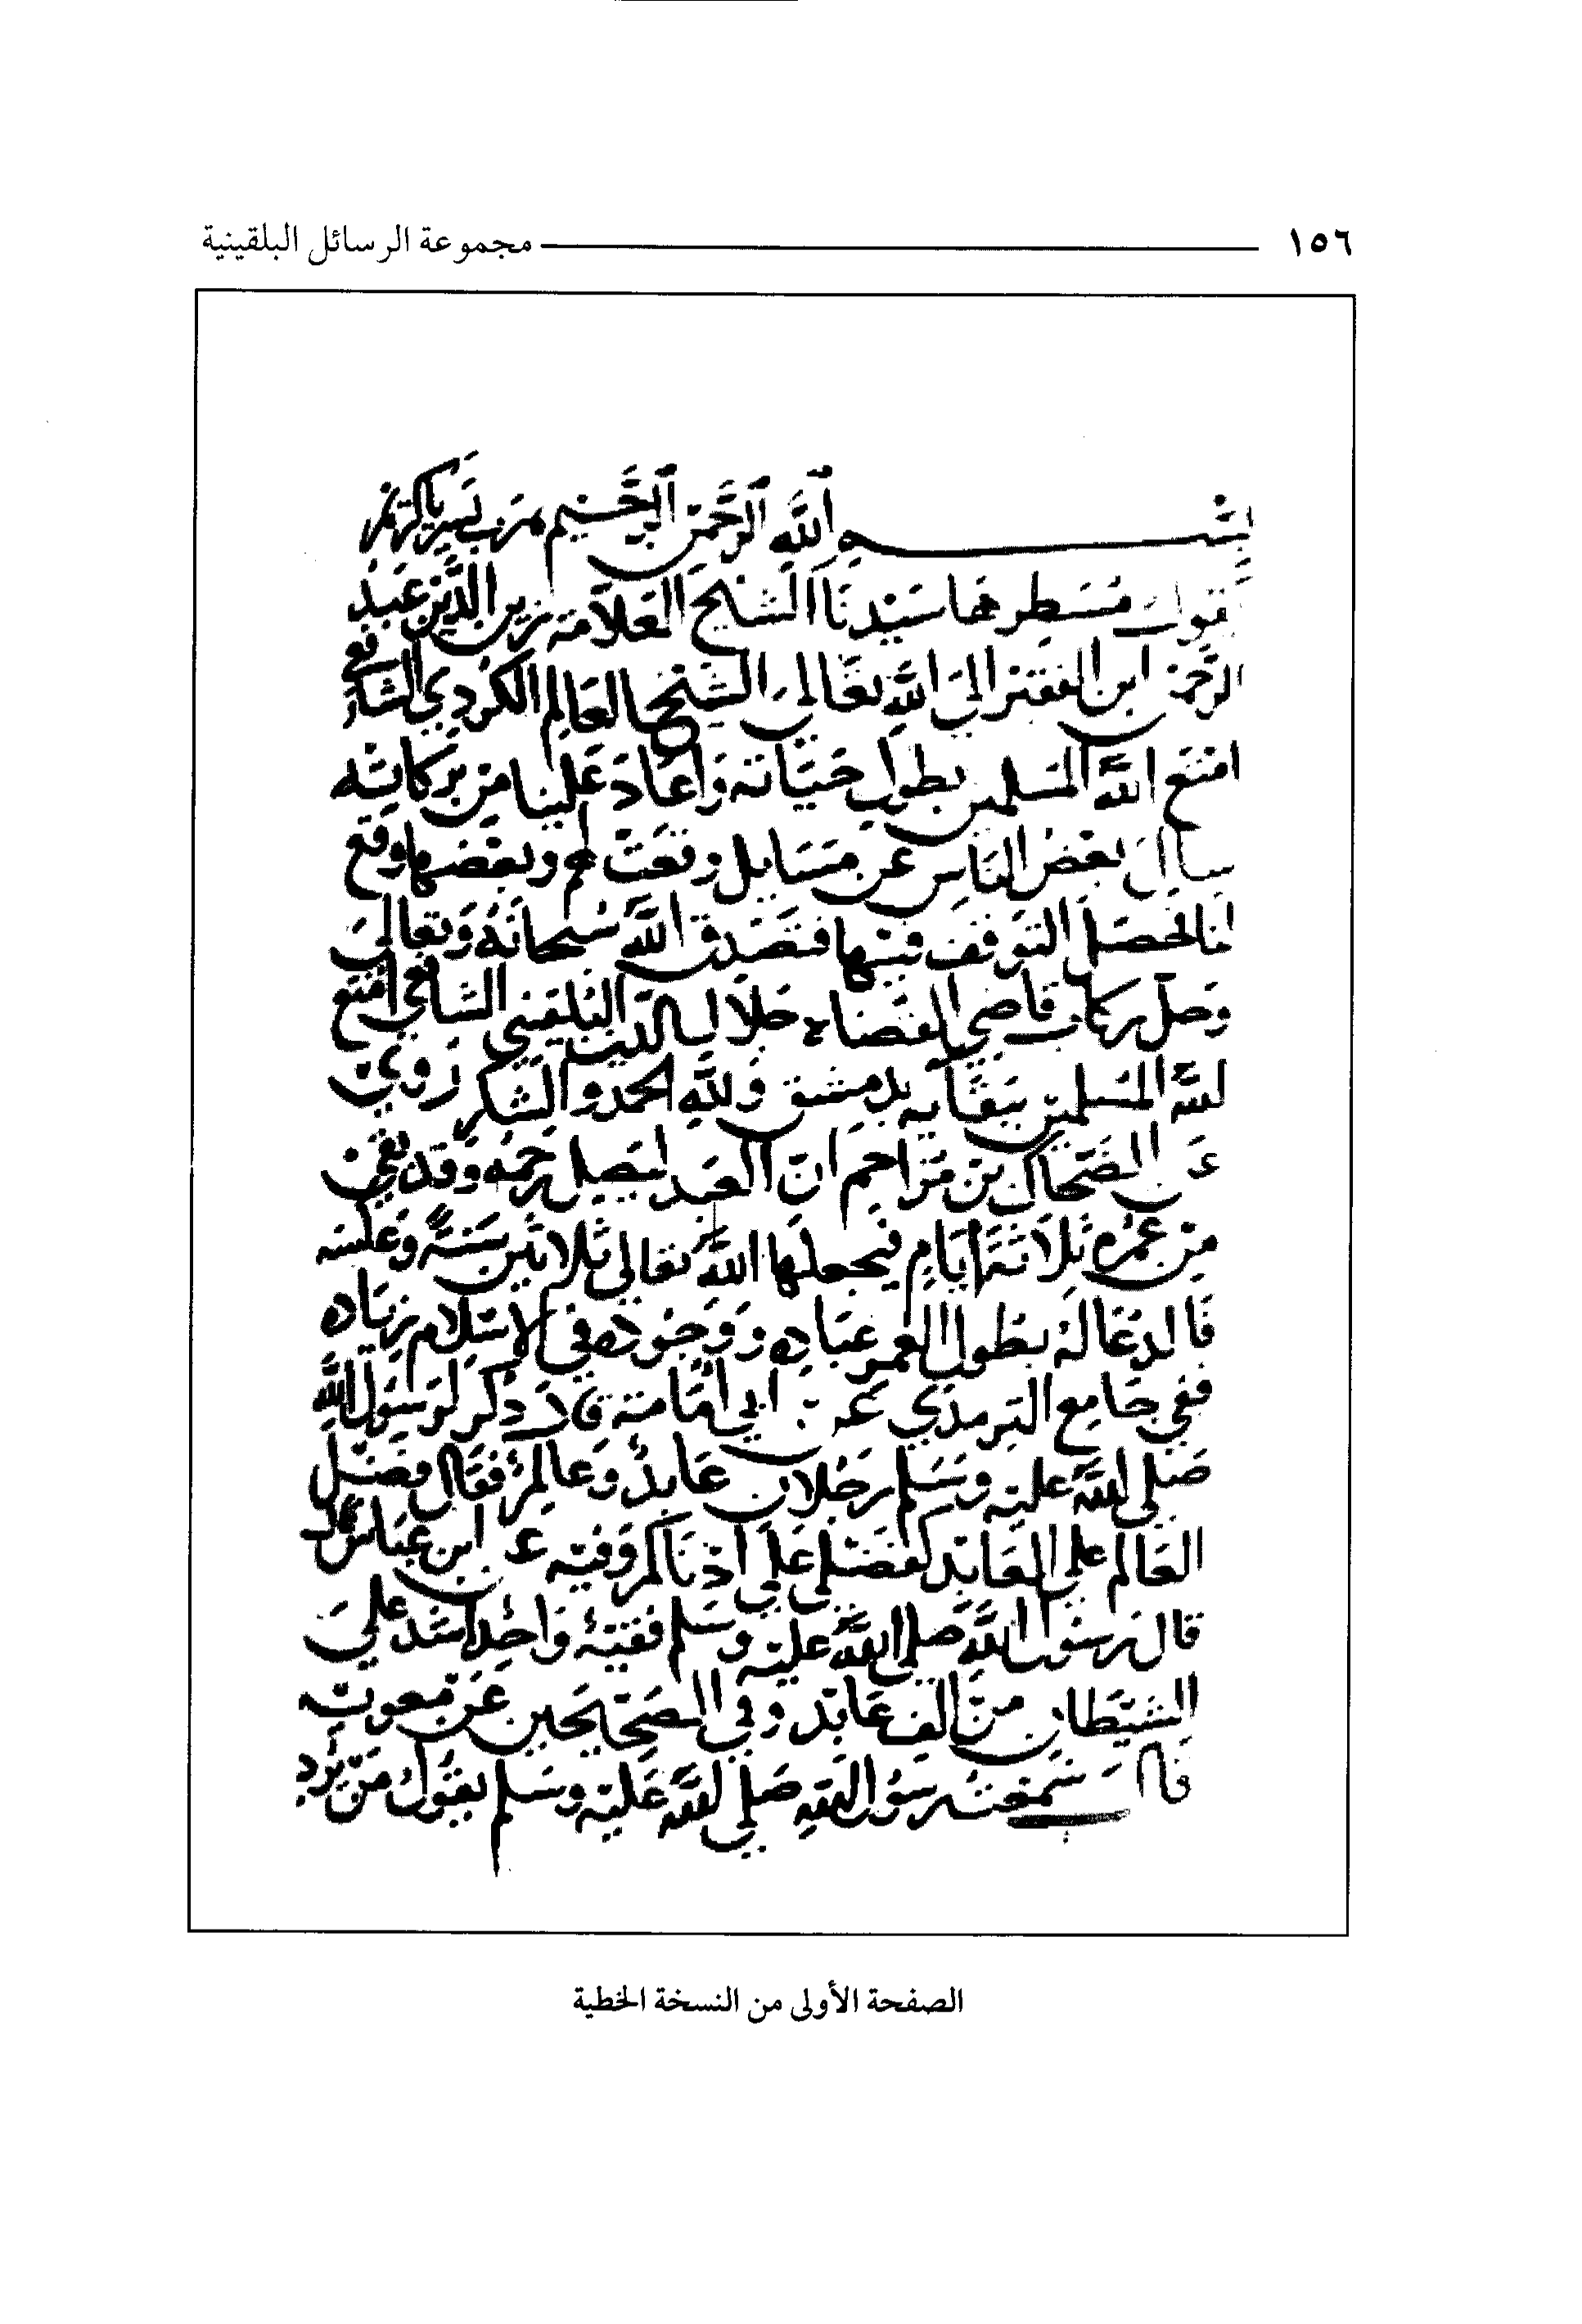 ١٥٦ مجموعة الرسائل البلقينية
بسم الله الرحمن الرحيم رب يسر يا كريم
يقول مسطرها سيدنا الشيخ العلامة زين الدين عبد
الرحمن ابن الفقير الى الله تعالى الشيخ العالم الكردي الشافعي
امتع الله المسلمين بطول حياته واعاد علينا من بركاته
سال بعض الناس عن مسايل وقعت لهم وبعضها وقع
لنا فحصل التوقف فيها فتصدق الله سبحانه وتعالى
وحل ركاب قاضي القضاه جلال الدين البلقيني الشافعي امتع
الله المسلمين ببقايه بدمشق ولله الحمد والشكر روي
عن الضحاك بن مزاحم ان العبد ليصل رحمه وقد بقي
من عمره ثلاثة ايام فيجعلها الله تعالى ثلاثين سنة وعليه
فالدعا له بطول العمر عباده ووجوده في الاسلام زياده
ففي جامع الترمذي عن ابي امامة قال ذكر لرسول الله
صلى الله عليه وسلم رجلان عابد وعالم فقال فضل
العالم على العابد كفضلي على ادناكم وفيه عن ابن عباس قال
قال رسول الله صلى الله عليه وسلم فقيه واحد اشد على
الشيطان من الف عابد وفي الصحيحين عن معوية
قال سمعت رسول الله صلى الله عليه وسلم يقول من يرد
الصفحة الأولى من النسخة الخطية